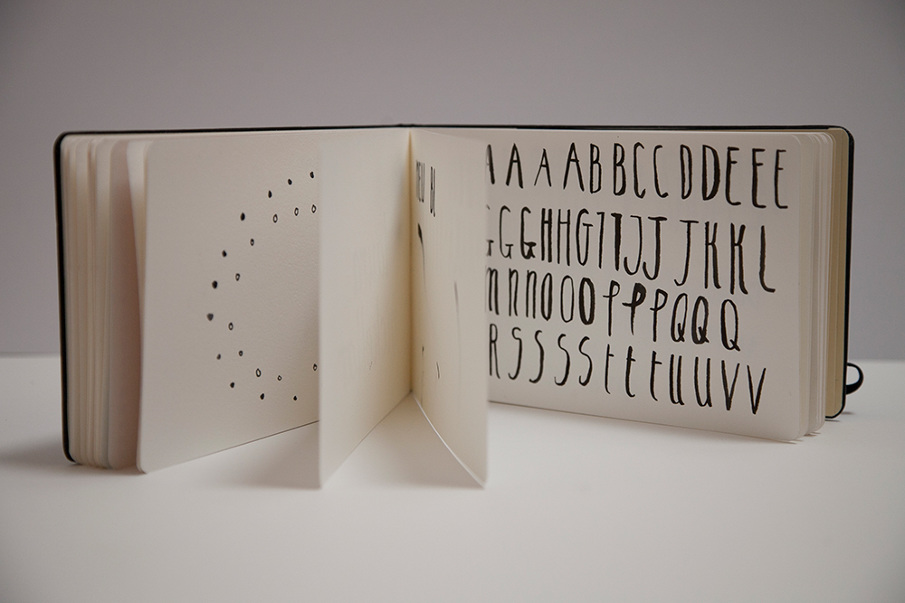 A A A A B B C C D D E E E
G G G H H G I I J J J K K L
n n n O O O P P P Q Q Q
R S S S S t t t u u u v v